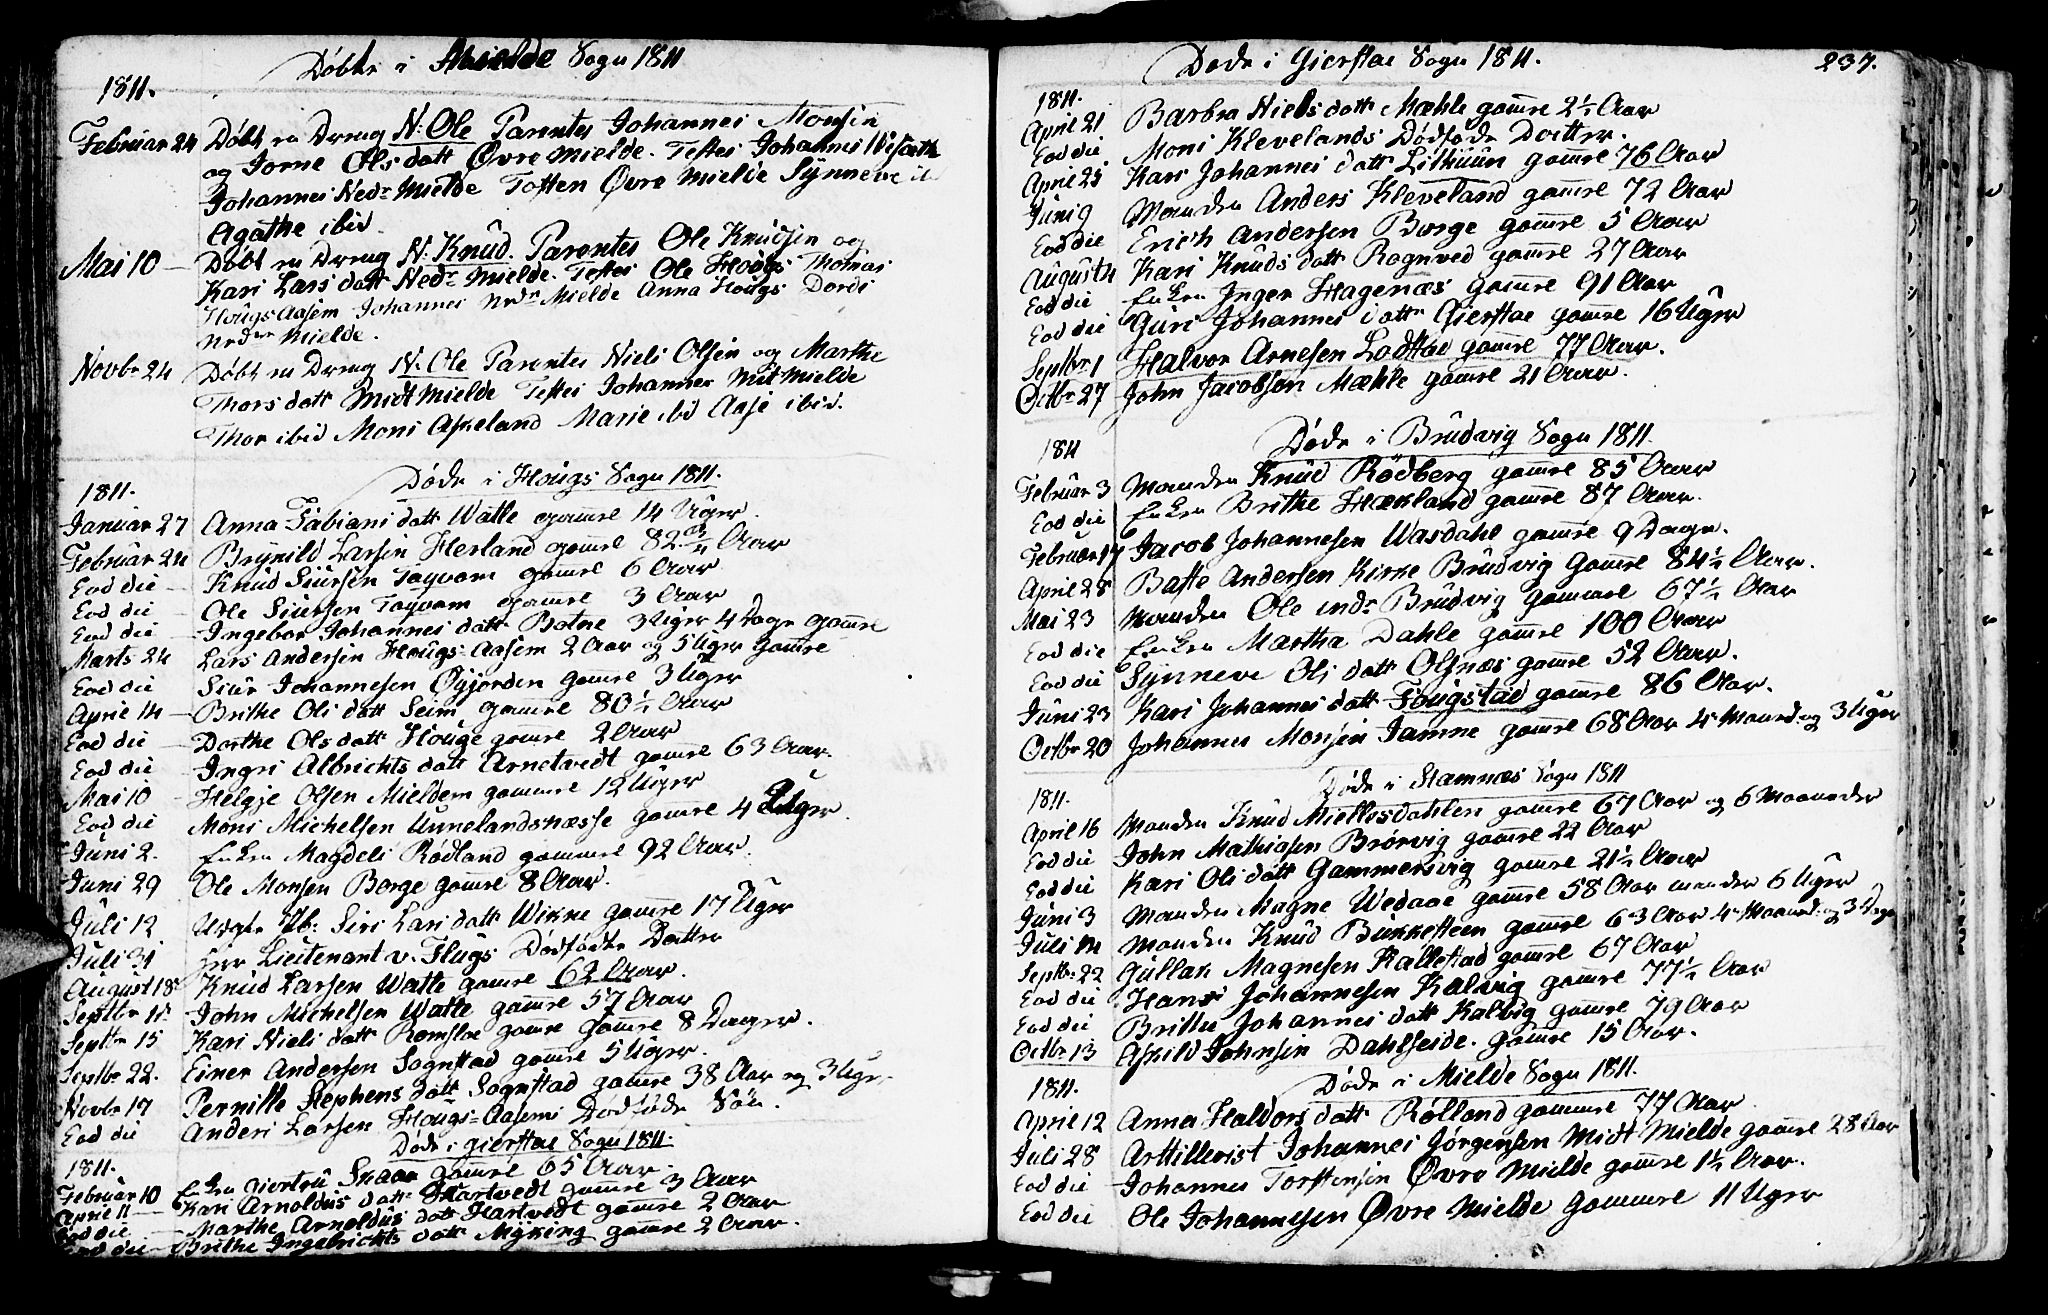 Døbte i Mielde Sogn 1811
1811.
Februar 24 Døbt en Dreng N: Ole Parentes Johannes Monsen
og Jorne Ols datt Øvre Mielde. Testes Johannes
Johannes Nedr Mielde Tosten Øvre Mielde Synneve
Agathe ibid
Mai 10 Døbt en Dreng N: Knud. Parentes Ole Knudsen og
Kari Lars datt Nedr Mielde. Testes Ole Hougs Thomas
Hougs Aasem Johannes Nedr Mielde Anna Hougs Dordi
Nedr Mielde.
Novbr 24 Døbt en Dreng N: Ole Parentes Niels Olsen og Marthe
Thors datt Midt Mielde Testes Johannes Mit Mielde
Thor ibid Mons Askeland Marie ibd Aasé ibid.
Døde i Hougs Sogn 1811.
1811.
Januar 27 Anna Fabians datt Watle gamel 14 Uger
Februar 24 Brynild Larsen Herland gamel 82 3/4 Aar
Eod die Knud Siursen Tøqvam gamel 6 Aar
Eod die Ole Siursen Tøqvam gamel 3 Aar
Eod die Ingebor Johannes datt Botne 3 Uger 4 Dage gamel
Marts 24 Lars Andersen Hougs-Aasem 2 Aar og 5 Uger gamel
Eod die Siur Johannesen Øyjorden gamel 3 Uger
April 14 Brithe Ols datt Seim gamel 80 1/2 Aar
Eod die Dorthe Ols datt Houge gamel 2 Aar
Eod die Ingri Albrichts datt Arnetvedt gamel 63 Aar.
Mai 10 Helgje Olsen Mieldem gamel 12 Uger
Eod die Mons Michelsen Unnelandsnæsse gamel 4 Uger.
Juni 2. Enken Magdeli Rødland gamel 92 Aar.
Juni 29 Ole Monsen Borge gamel 8 Aar.
Juli 12 Siri Lars datt Wikne gamel 17 Uger
Juli 31 Herr Lieutenant v. Flugs Dødfødte Datter
August 18 Knud Larsen Watle gamel 62 Aar.
Septbr John Michelsen Watle gamel 57 Aar
Septbr 15 Kari Niels datt Romslo gamel gamel 8 Dager.
Septbr 22. Einer Andersen Sognstad gamel 5 Uger.
Novbr 17 Pernille Stephens datt Sognstad gamel 38 Aar og 3 Uger
Eod die Anders Larsen Hougs-Aasems Dødføde Søn.
Døde i Gierstae Sogn 1811.
1811.
Februar 10 Enken Giertru Skaar gamel 65 Aar.
April 11 Kari Arnoldus datt Hartvedt gamel 3 Aar
Eod die Marthe Arnoldus datt Hartvedt gamel 2 Aar
Eod die Brithe Ingebrichts datt Myking gamel 2 Aar.
Døde i Gierstae Sogn 1811. 237.
1811.
April 21 Barbra Niels datt Mæhle gamel 2 1/2 Aar
Eod die Mons Klevelands Dødføde Datter.
April 25 Kari Johannes datt gamel 76 Aar
Juni 9 Manden Anders Kleveland gamel 72 Aar
Eod die Erich Andersen Borge gamel 5 Aar
August 4 Kari Knuds datt Rognved gamel 27 Aar
Eod die Enken Inger Hagenæs gamel 91 Aar
Eod die Guri Johannes datt Gierstae gamel 16 Uger
Septbr 1 Halvor Arnesen Loftaas gamel 77 Aar.
Octbr 27 John Jacobsen Mæhle gamel 21 Aar.
Døde i Brudvig Sogn 1811.
1811
Februar 3 Manden Knud Rødberg gamel 85 Aar
Eod die Enken Brithe Hækland gamel 87 Aar.
Februar 17 Jacob Johannesen Wasdahl gamel 9 Dage.
April 28 Baste Andersen Kirke Brudvig gamel 84 1/2 Aar.
Mai 23 Manden Ole indr Brudvig gamel 67 1/2 Aar
Eod die Enken Martha Dahle gamel 100 Aar
Eod die Synneve Ols datt Olsnæs gamel 52 Aar.
Juni 23 Kari Johannes datt Fougstad gamel 86 Aar.
Octbr 20 Johannes Monsen Jamne gamel 68 Aar 4 Maand. og 3 Uger
Døde i Stamnæs Sogn 1811
1811.
April 16 Manden Knud Miellesdahlen gamel 67 Aar og 6 Maaneder
Eod die John Mathiasen Brørvig gamel 22 Aar
Eod die Kari Ols datt Gammersvig gamel 21 1/2 Aar
Juni 3 Manden Magne Wedaae gamel 58 Aar mander 6 Uger
Juli 14 Manden Knud Bukkesteen gamel 63 Aar 4 Maand: og 3 Dage
Septbr 22 Gullak Magnesen Kallestad gamel 67 Aar
Eod die Hans Johannesen Kalvig gamel 77 1/2 Aar
Eod die Britha Johannes datt Kalvig gamel 79 Aar
Octbr 13 Askild Johnsen Dahlseide. gamel 15 Aar.
Døde i Mielde Sogn 1811.
1811.
April 12 Anna Haldors datt Rølland gamel 77 Aar
Juli 28 Arttillerist Johannes Jørgensen Midt Mielde gamel 28 Aar
Eod die Johannes Torstensen Øvre Mielde gamel 1 1/2 Aar.
Eod die Ole Johannesen Øvre Mielde gamel 11 Uger